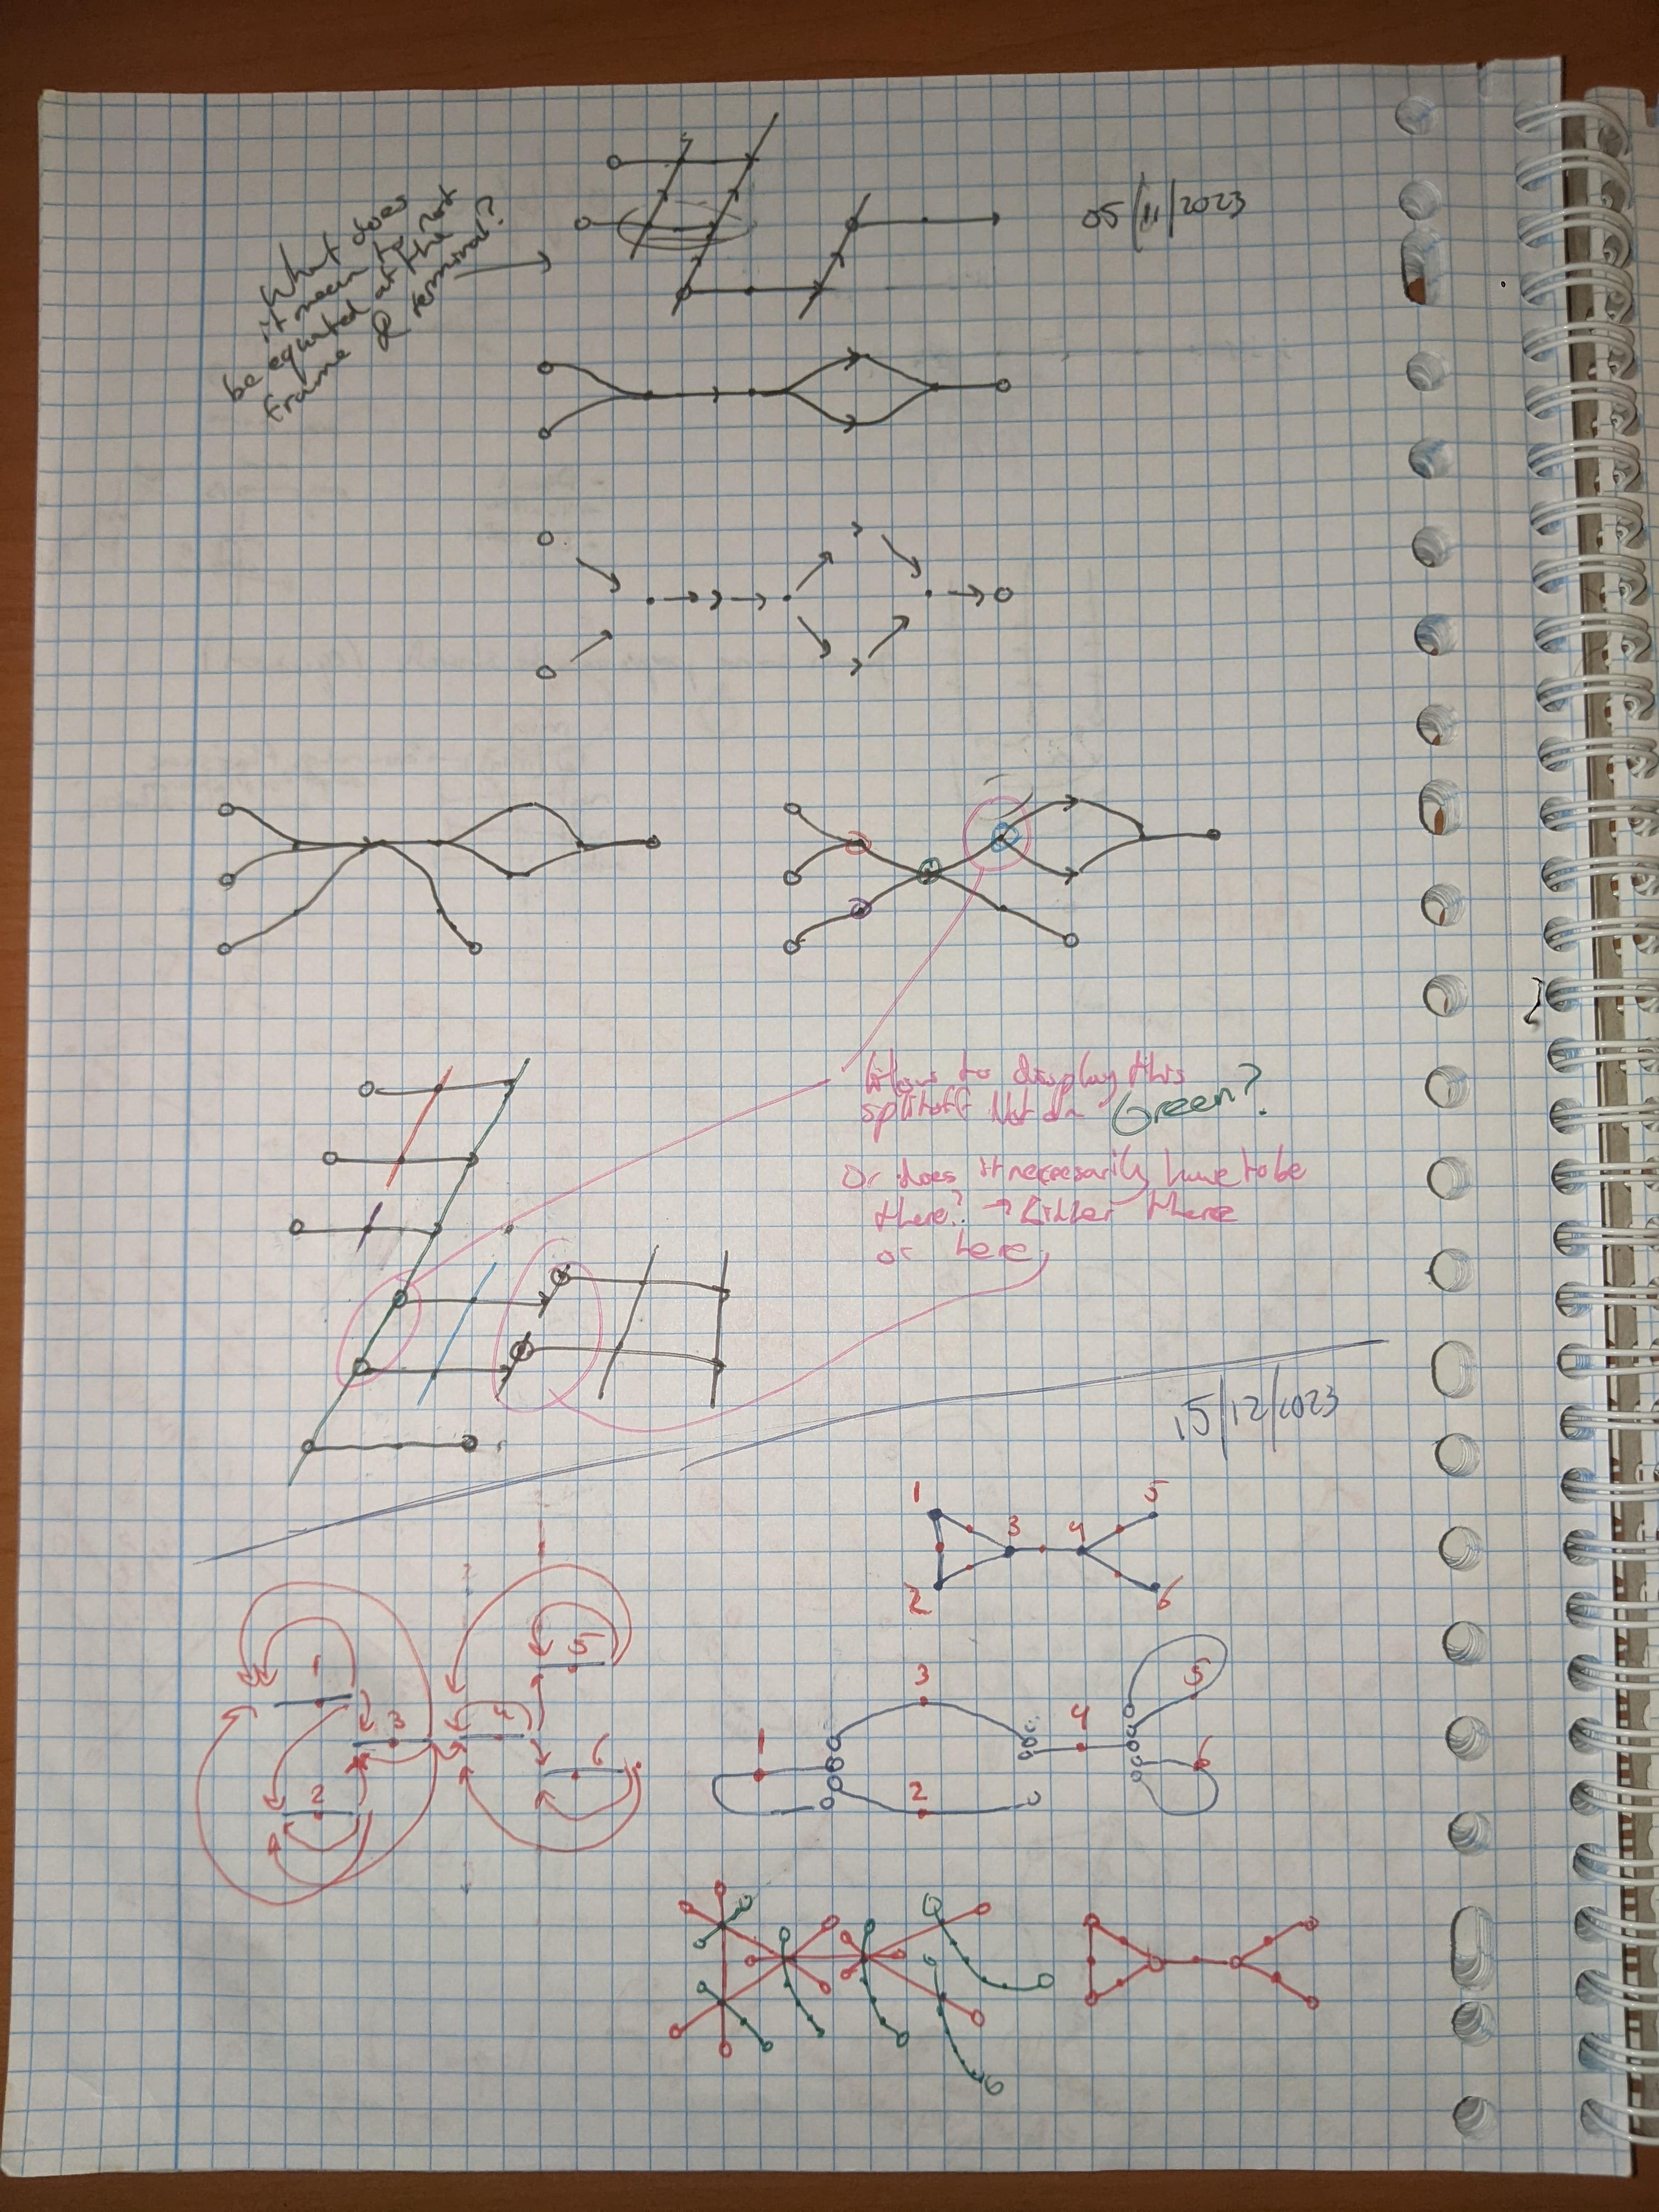 05/11/2023
What does
it mean to not
be equated at the
frame & terminal?
How to display this
splitoff Not on Green?
Or does it necessarily have to be
there? → Either there
or here
15/12/2023
1 5
3 4
2 6
1 5
3 4
2 6
3 5
1 4
2 6